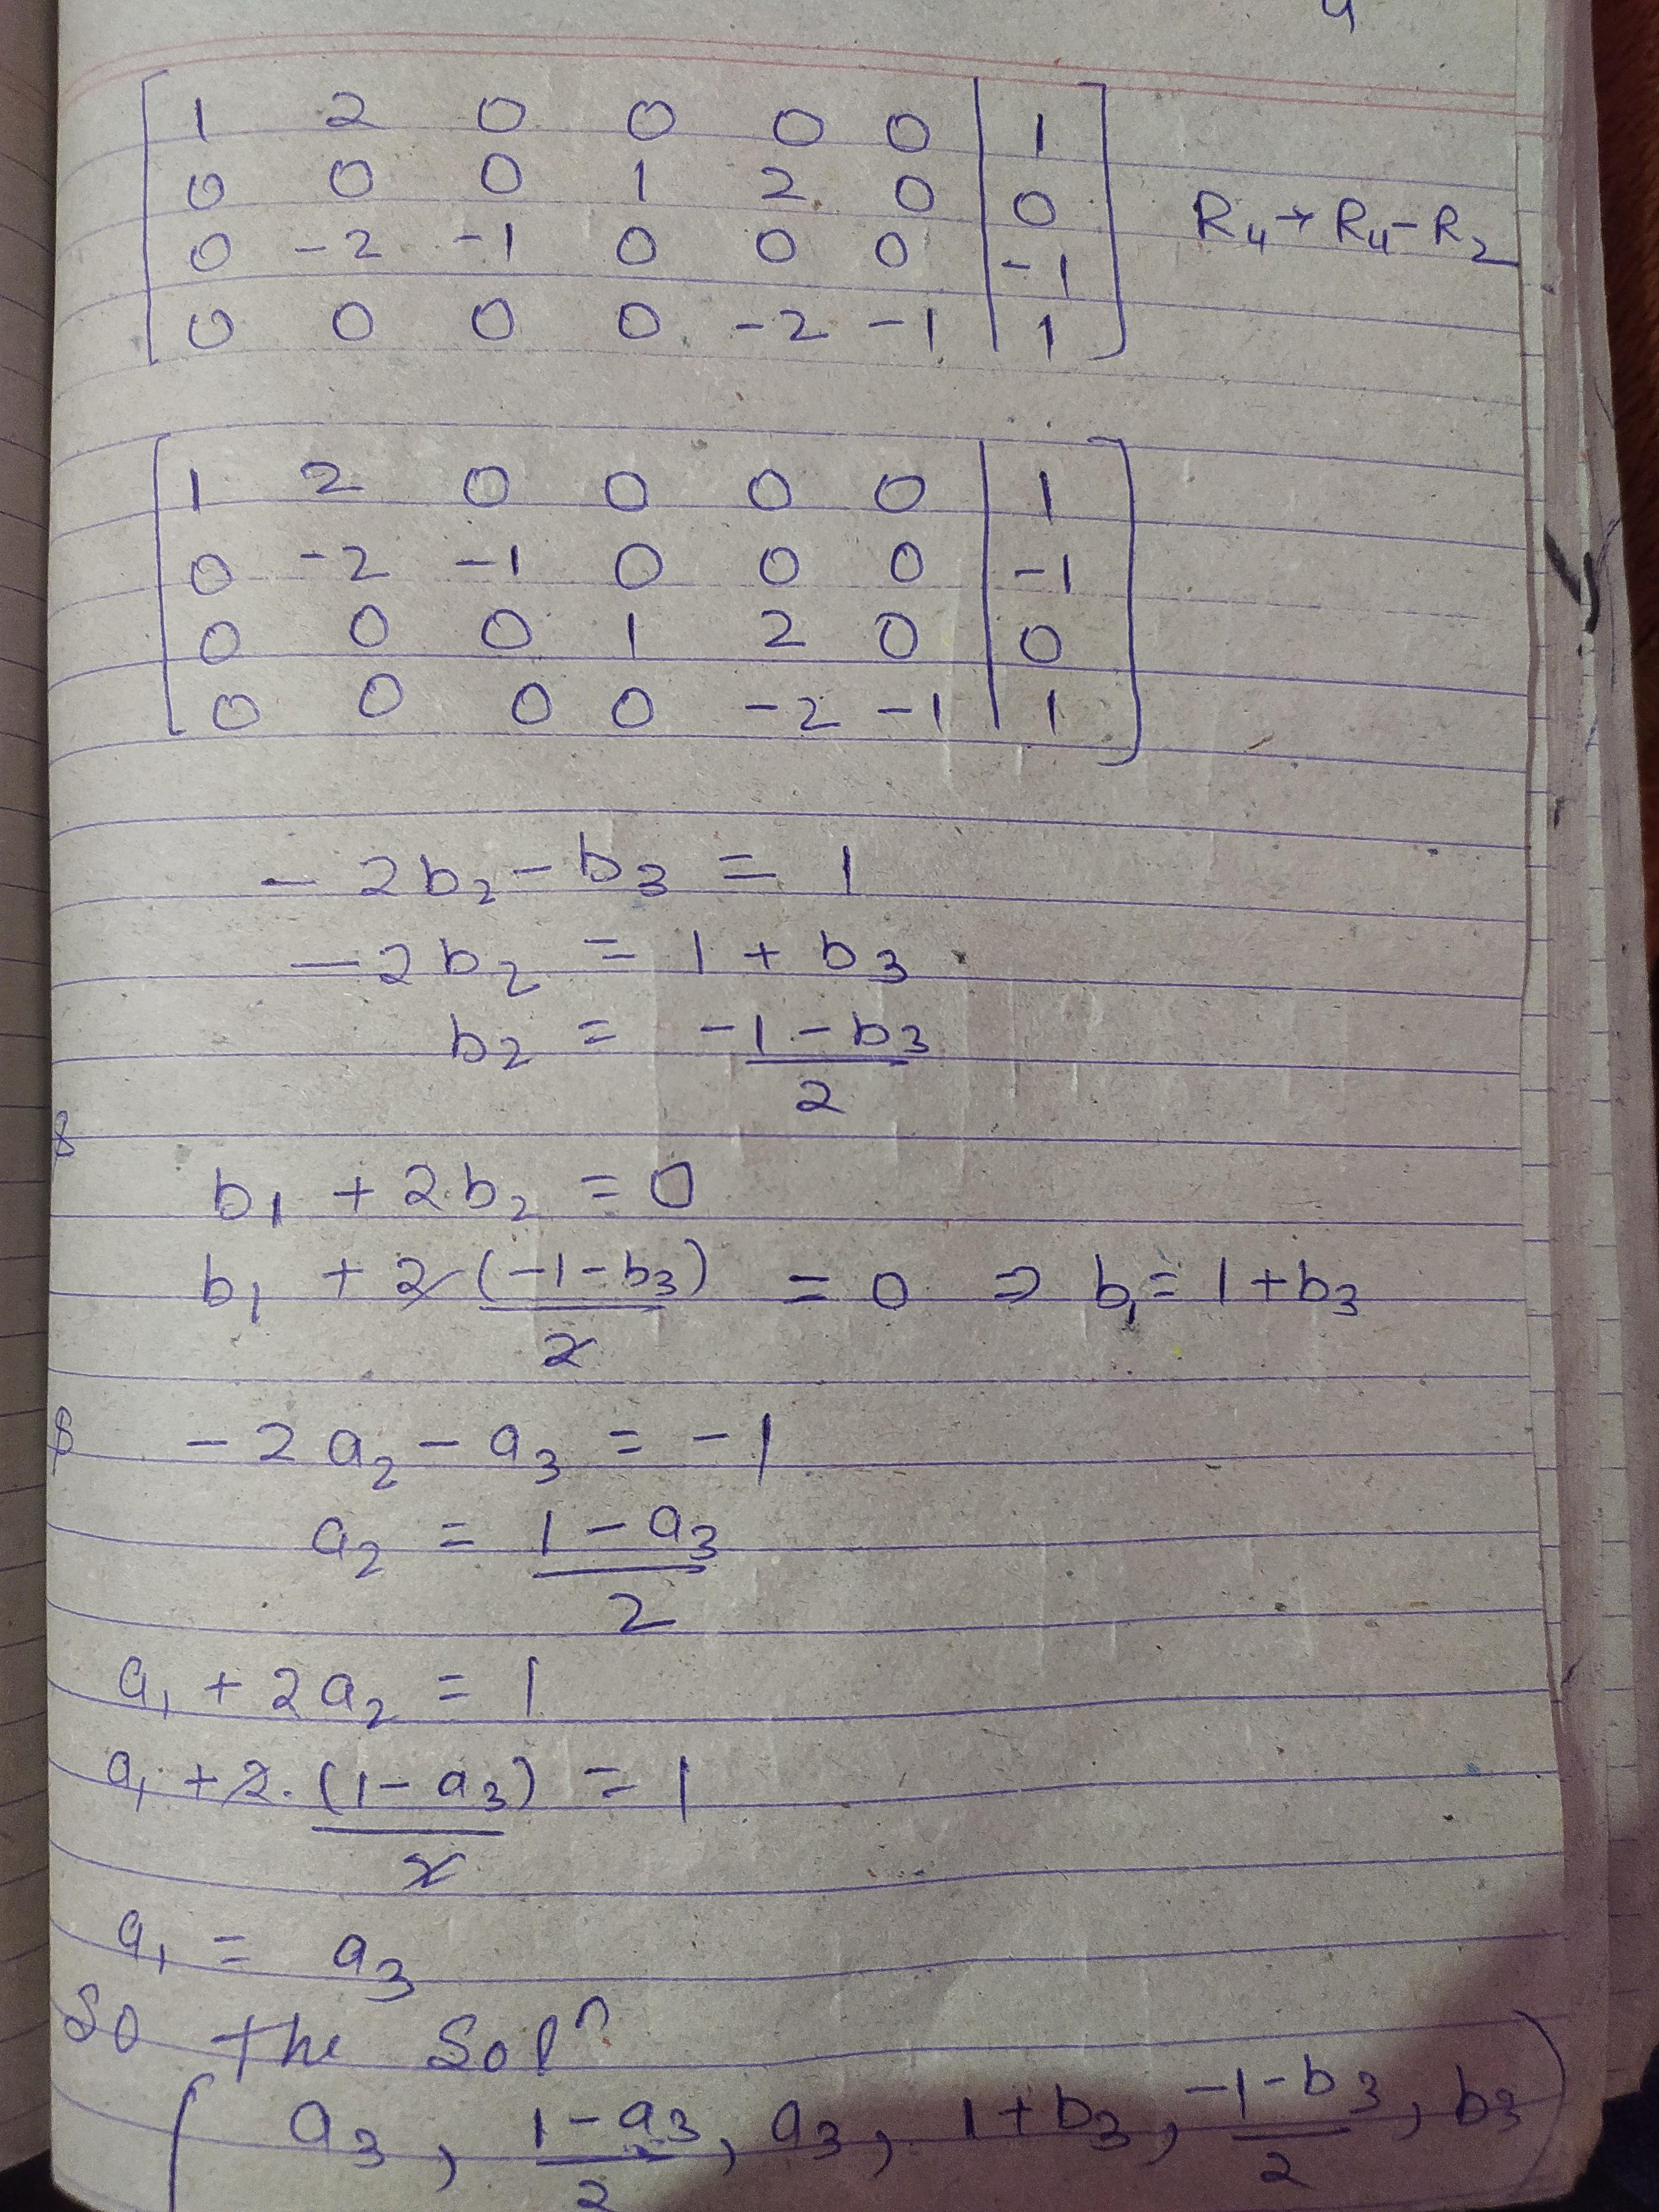 1 2 0 0 0 0 | 1
0 0 0 1 2 0 | 0 R₄ → R₄ - R₂
0 -2 -1 0 0 0 | -1
0 0 0 0 -2 -1 | 1
1 2 0 0 0 0 | 1
0 -2 -1 0 0 0 | -1
0 0 0 1 2 0 | 0
0 0 0 0 -2 -1 | 1
- 2b₂ - b₃ = 1
- 2b₂ = 1 + b₃
b₂ = (-1 - b₃)/2
b₁ + 2b₂ = 0
b₁ + 2(-1-b₃)/2 = 0 ⇒ b₁ = 1 + b₃
- 2a₂ - a₃ = -1
a₂ = (1 - a₃)/2
a₁ + 2a₂ = 1
a₁ + 2.(1 - a₃)/2 = 1
a₁ = a₃
So the Solⁿ
(a₃, (1-a₃)/2, a₃, 1+b₃, (-1-b₃)/2, b₃)